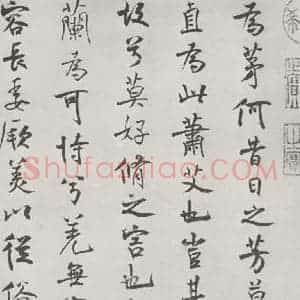 為茅何昔日之芳草
直為此蕭艾也豈其
故兮莫好脩之害也
蘭為可恃兮羌無
容長委厥美以從俗
Shufazidian.com